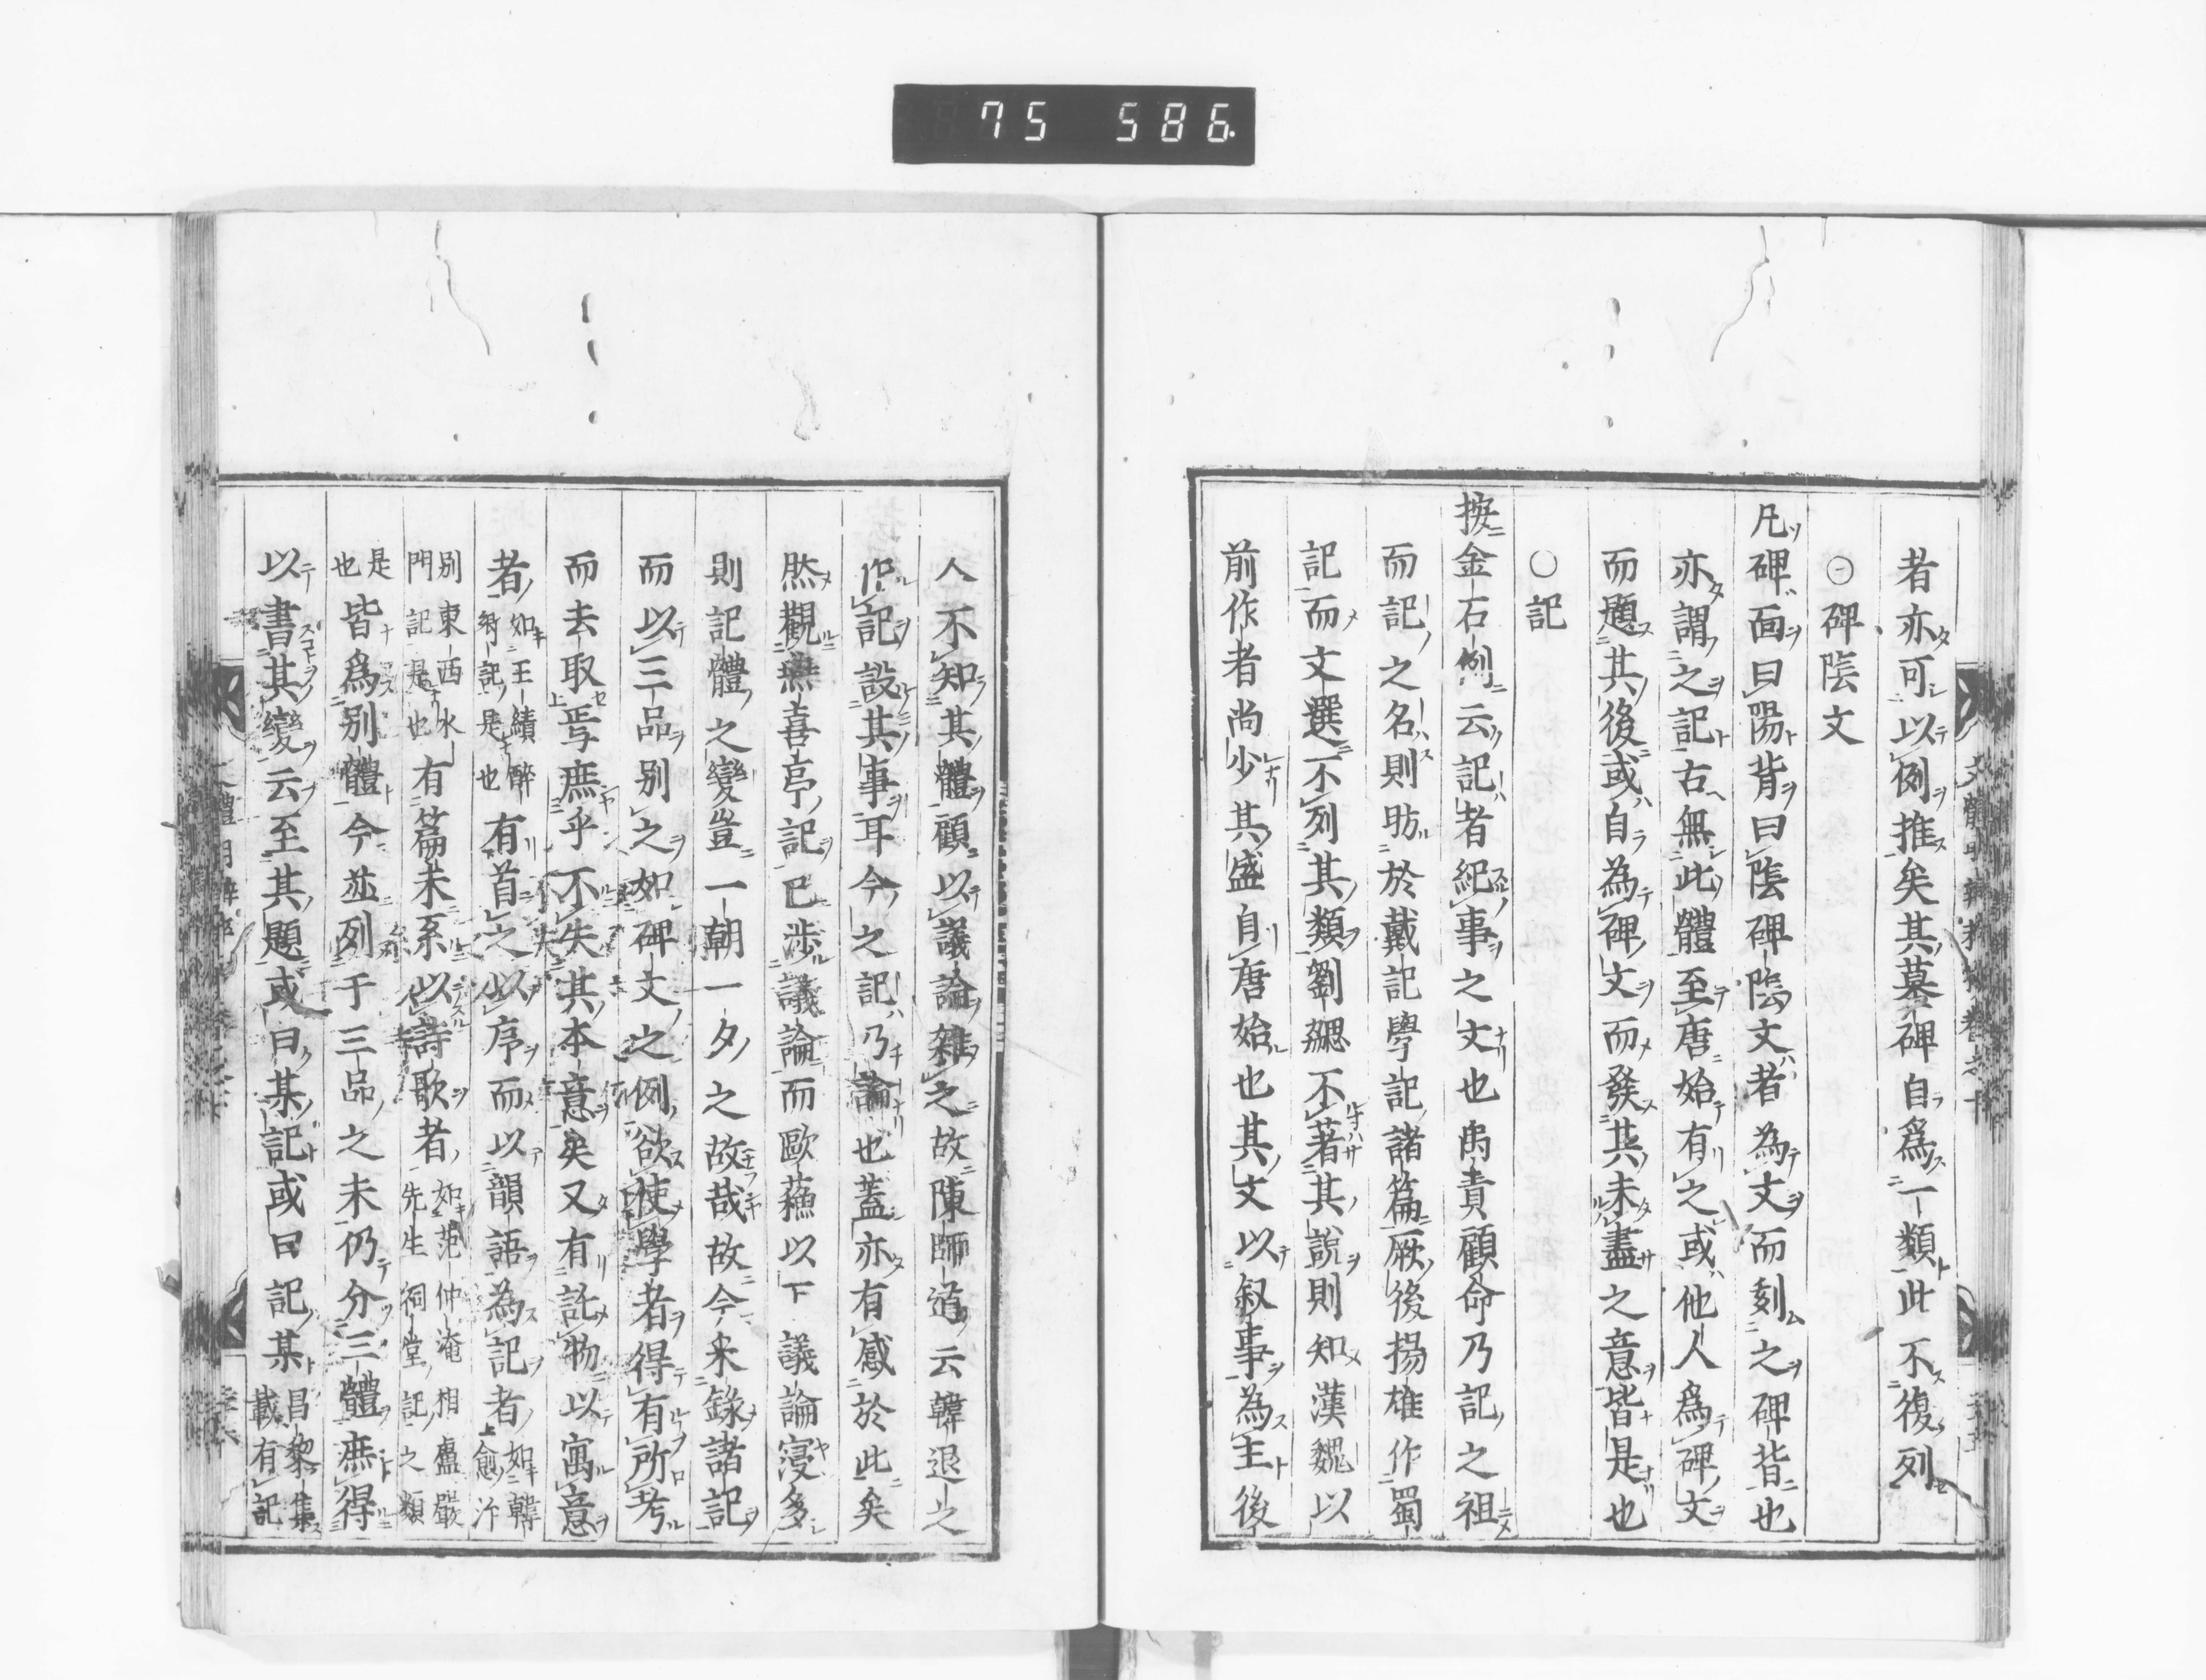 75 586
者亦可以例推矣其墓碑自爲一類此不復列
○碑陰文
凡碑面曰陽背曰陰碑陰文者為文而刻之碑背也
亦謂之記古無此體至唐始有之或他人爲碑文
而題其後或自為碑文而發其未盡之意皆是也
○記
按金石例云記者紀事之文也禹貢顧命乃記之祖
而記之名則昉於戴記學記諸篇厥後揚雄作蜀
記而文選不列其類劉勰不著其說則知漢魏以
前作者尚少其盛自唐始也其文以叙事為主後
人不知其體顧以議論雜之故陳師道云韓退之
作記設其事耳今之記乃論也蓋亦有感於此矣
然觀燕喜亭記已涉議論而歐蘓以下議論寖多
則記體之變豈一朝一夕之故哉故今采錄諸記
而以三品别之如碑文之例欲使學者得有所考
而去取焉庶乎不失其本意矣又有託物以寓意
者如王績醉鄉記是也有首之以序而以韻語為記者如韓愈汴
州東西水門記是也有篇末系以詩歌者如范仲淹相廬嚴先生祠堂記之類
是也皆爲别體今並列于三品之末仍分三體庶得
以書其變云至其題或曰某記或曰記某昌黎集載有記